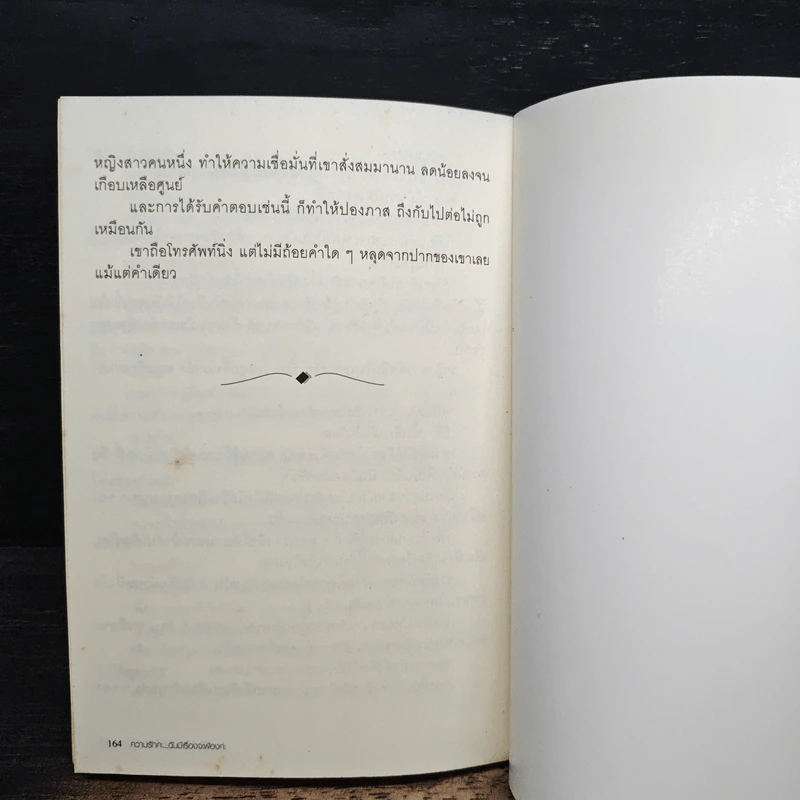 หญิงสาวคนหนึ่ง ทำให้ความเชื่อมั่นที่เขาสั่งสมมานาน ลดน้อยลงจน
เกือบเหลือศูนย์
และการได้รับคำตอบเช่นนี้ ก็ทำให้ปองภาส ถึงกับไปต่อไม่ถูก
เหมือนกัน
เขาถือโทรศัพท์นิ่ง แต่ไม่มีถ้อยคำใด ๆ หลุดจากปากของเขาเลย
แม้แต่คำเดียว
164 ความรักคะ...ฉันมีเรื่องจะฟ้องค่ะ